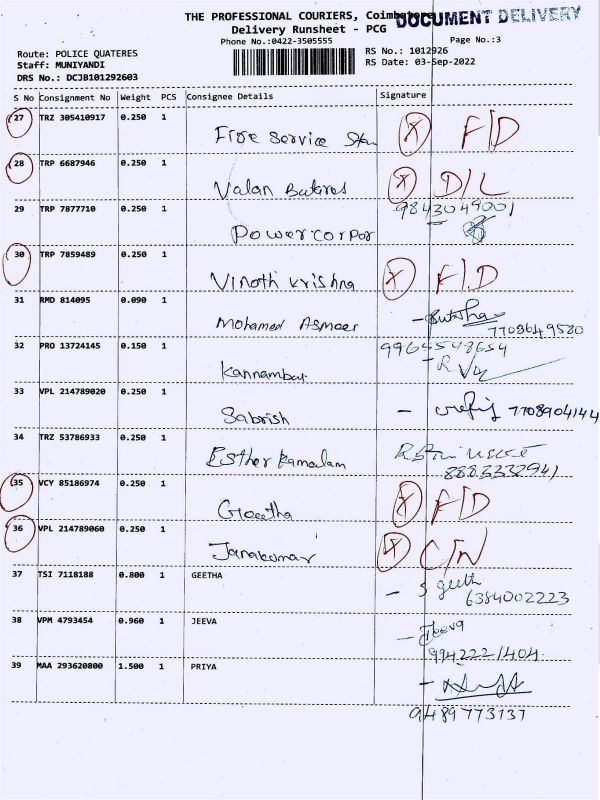 THE PROFESSIONAL COURIERS, Coimbatore
DOCUMENT DELIVERY
Delivery Runsheet - PCG
Phone No.:0422-3505555
Page No.:3
Route: POLICE QUATERES
RS No.: 1012926
Staff: MUNIYANDI
RS Date: 03-Sep-2022
DRS No.: DCJB101292603
S No Consignment No Weight PCS Consignee Details Signature
27 TRZ 305410917 0.250 1
Fire Service Stan X F/D
28 TRP 6687946 0.250 1
Valan Butares X D/L
29 TRP 7877710 0.250 1 9843049001
Powercorpor
30 TRP 7859489 0.250 1
Vinoth Krishna X F/D
31 RMD 814095 0.090 1
Mohamed Asmeer
7708649580
32 PRO 13724145 0.150 1
Kannambal
33 VPL 214789020 0.250 1
Sabrish 7708904144
34 TRZ 53786933 0.250 1
Esther Kamalam
8883332941
35 VCY 85186974 0.250 1
Geetha X F/D
36 VPL 214789060 0.250 1
Janakumar X C/N
37 TSI 7118188 0.800 1 GEETHA
S geeth
6384002223
38 VPM 4793454 0.960 1 JEEVA
Jeeva
9942221404
39 MAA 293620800 1.500 1 PRIYA
9489773737